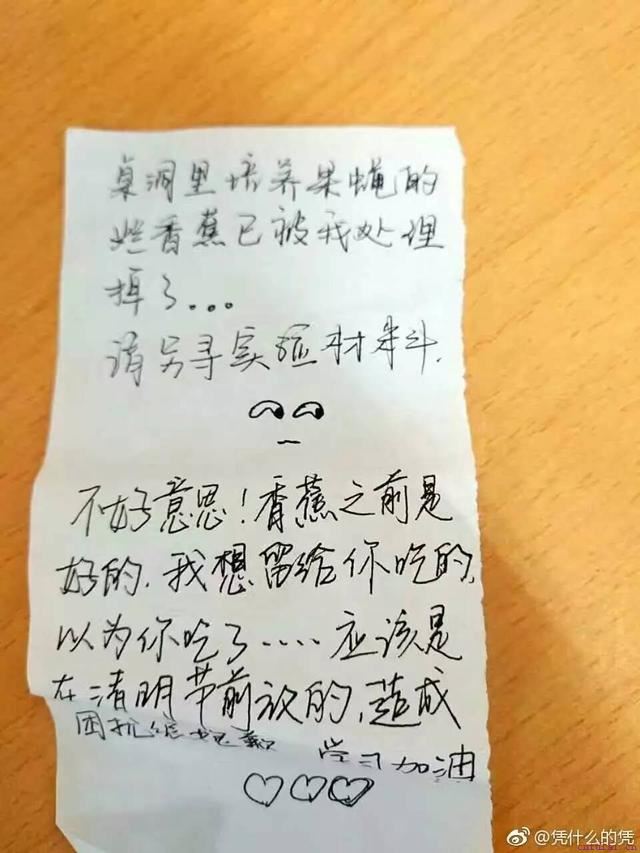 桌洞里培养果蝇的
烂香蕉已被我处理
掉了...
请另寻实验材料.
不好意思!香蕉之前是
好的.我想留给你吃的,
以为你吃了....应该是
在清明节前放的,造成
困扰像抱歉
学习加油
@凭什么的凭